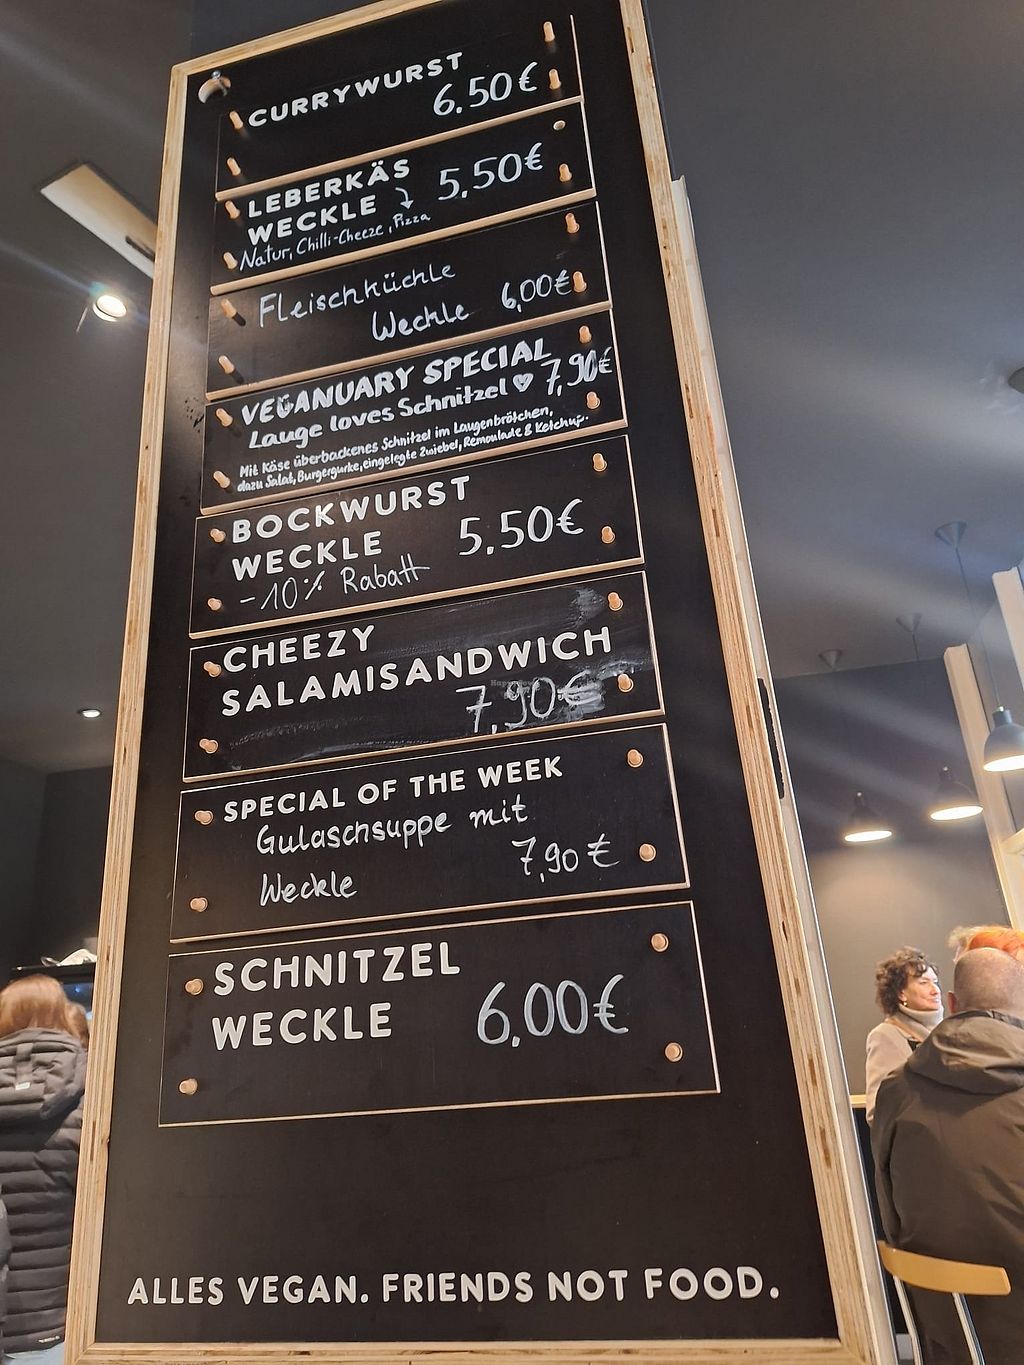 CURRYWURST
6.50€
LEBERKÄS
WECKLE 5.50€
Natur, Chilli-Cheeze, Pizza
Fleischküchle
Weckle 6,00€
VEGANUARY SPECIAL
Lauge loves Schnitzel ♥ 7,90€
Mit Käse überbackenes Schnitzel im Laugenbrötchen,
dazu Salat, Burgergurke, eingelegte Zwiebel, Remoulade & Ketchup.
BOCKWURST
WECKLE 5.50€
-10% Rabatt
CHEEZY
SALAMISANDWICH
7,90€
SPECIAL OF THE WEEK
Gulaschsuppe mit
Weckle 7,90€
SCHNITZEL
WECKLE 6,00€
ALLES VEGAN. FRIENDS NOT FOOD.